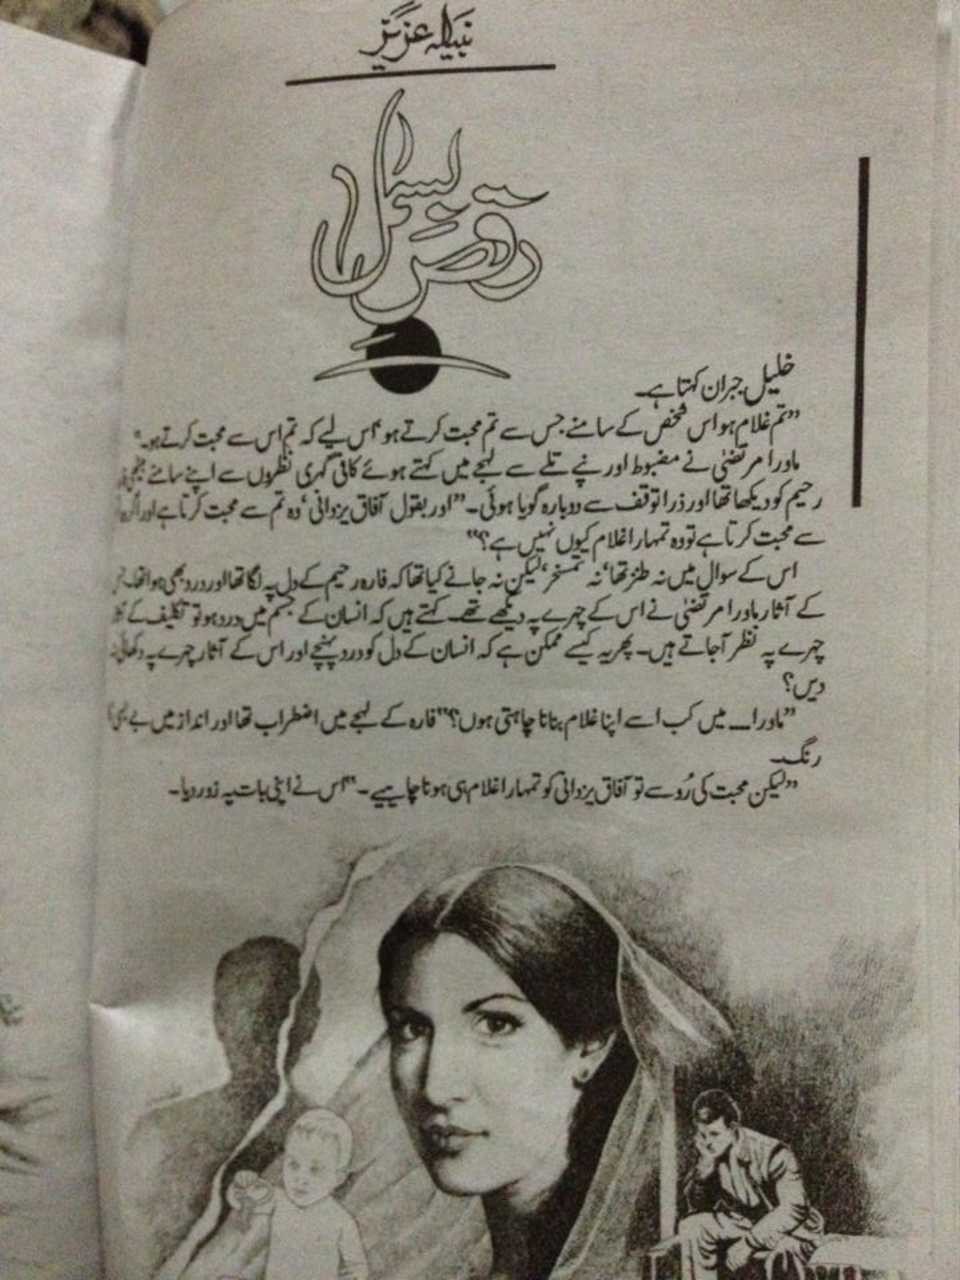 نبیلہ عزیز
رقصِ بسمل
خلیل جبران کہتا ہے۔
”تم غلام ہو اس شخص کے سامنے، جس سے تم محبت کرتے ہو‘ اس لیے کہ تم اس سے محبت کرتے ہو۔“
ماورا مرتضیٰ نے مضبوط اور نپے تلے سے لہجے میں کہتے ہوئے کافی گہری نظروں سے اپنے سامنے بیٹھی
رحیم کو دیکھا تھا اور ذرا توقف سے دوبارہ گویا ہوئی۔ ”اور بقول آفاق یزدانی‘ وہ تم سے محبت کرتا ہے اور اگر وہ
سے محبت کرتا ہے تو وہ تمہارا غلام کیوں نہیں ہے؟“
اس کے سوال میں نہ طنز تھا‘ نہ تمسخر‘ لیکن نہ جانے کیا تھا کہ فارہ رحیم کے دل پہ لگا تھا اور درد بھی ہوا تھا۔ جس
کے آثار ماورا مرتضیٰ نے اس کے چہرے پہ دیکھے تھے۔ کہتے ہیں کہ انسان کے جسم میں درد ہو تو تکلیف کے
چہرے پہ نظر آجاتے ہیں۔ پھر یہ کیسے ممکن ہے کہ انسان کے دل کو درد پہنچے اور اس کے آثار چہرے پہ دکھائی نہ
دیں؟
”ماورا۔ میں کب اسے اپنا غلام بنانا چاہتی ہوں؟“ فارہ کے لہجے میں اضطراب تھا اور انداز میں بے بسی
رنگ۔
”لیکن محبت کی رُو سے تو آفاق یزدانی کو تمہارا غلام ہی ہونا چاہیے۔“ اس نے اپنی بات پہ زور دیا۔